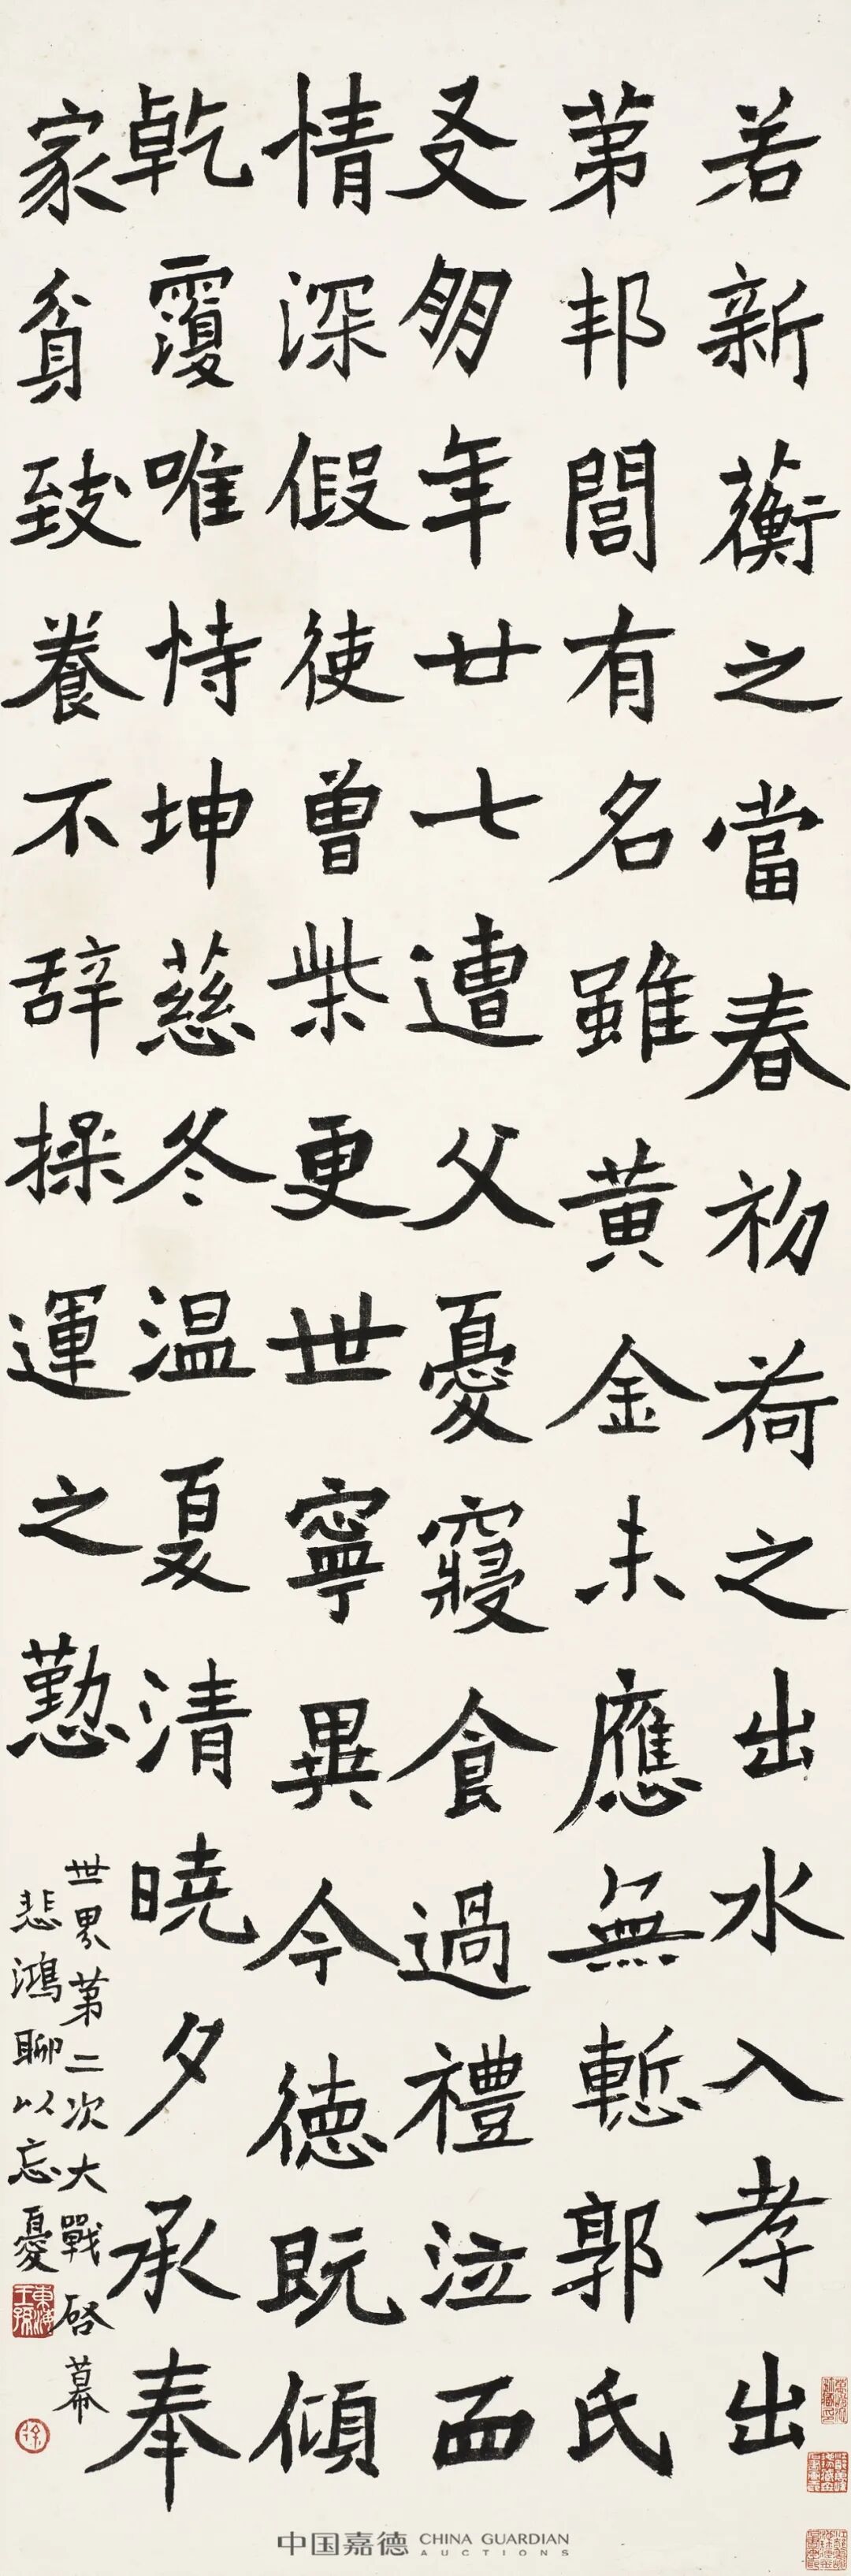 若新蘅之當春初荷之出水入孝出
苐邦閭有名雖黃金未應無慙郭氏
㕛朋年廿七遭父憂寢食過禮泣血
情深假使曾柴更世寧異今德既傾
乾覆唯恃坤慈冬温夏清曉夕承奉
家貧致養不辞操運之懃
世界苐二次大戰啓幕
悲鴻聊以忘憂
東海王孫
徐
中国嘉德 CHINA GUARDIAN
AUCTIONS